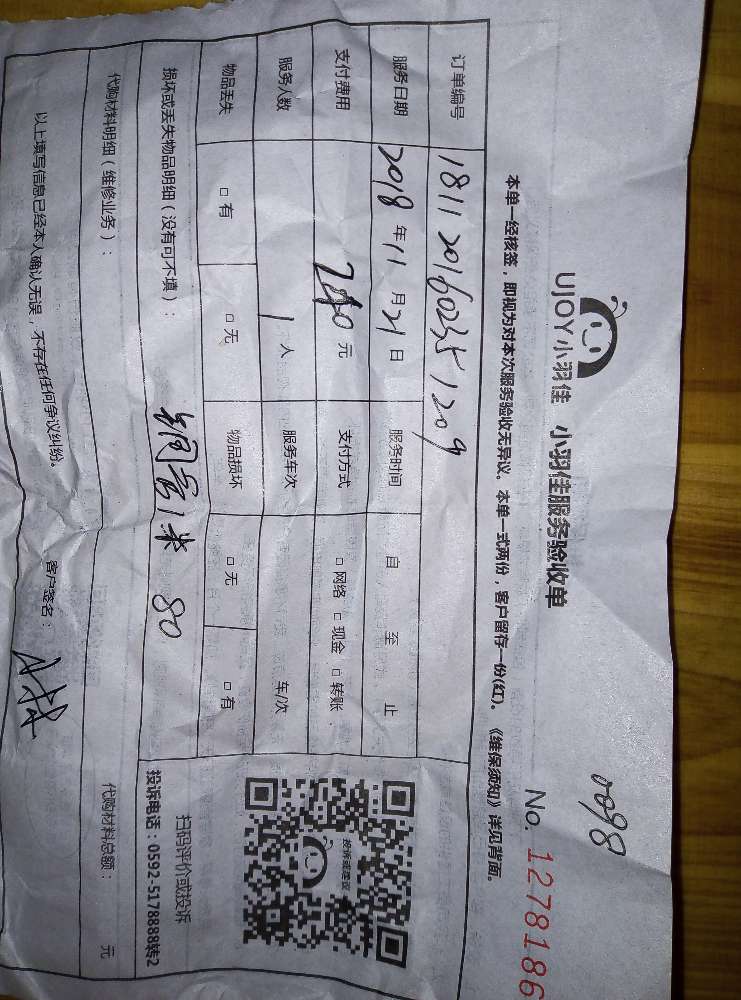 0098
UJOY小羽佳 小羽佳服务验收单
No. 1278186
本单一经核签，即视为对本次服务验收无异议。本单一式两份，客户留存一份(红)。《维保须知》详见背面。
订单编号 1811201602351209
服务日期 2018年11月21日 服务时间 自 至 止
支付费用 240元 支付方式 □网络 □现金 □转账
服务人数 1人 服务车次 车/次
物品丢失 □有 □无 物品损坏 □无 □有
损坏或丢失物品明细（没有可不填）：
铜管1米 80
代购材料明细（维修业务）： 代购材料总额： 元
以上填写信息已经本人确认无误，不存在任何争议纠纷。 客户签名：
扫码评价或投诉
投诉电话：0592-5178888转2